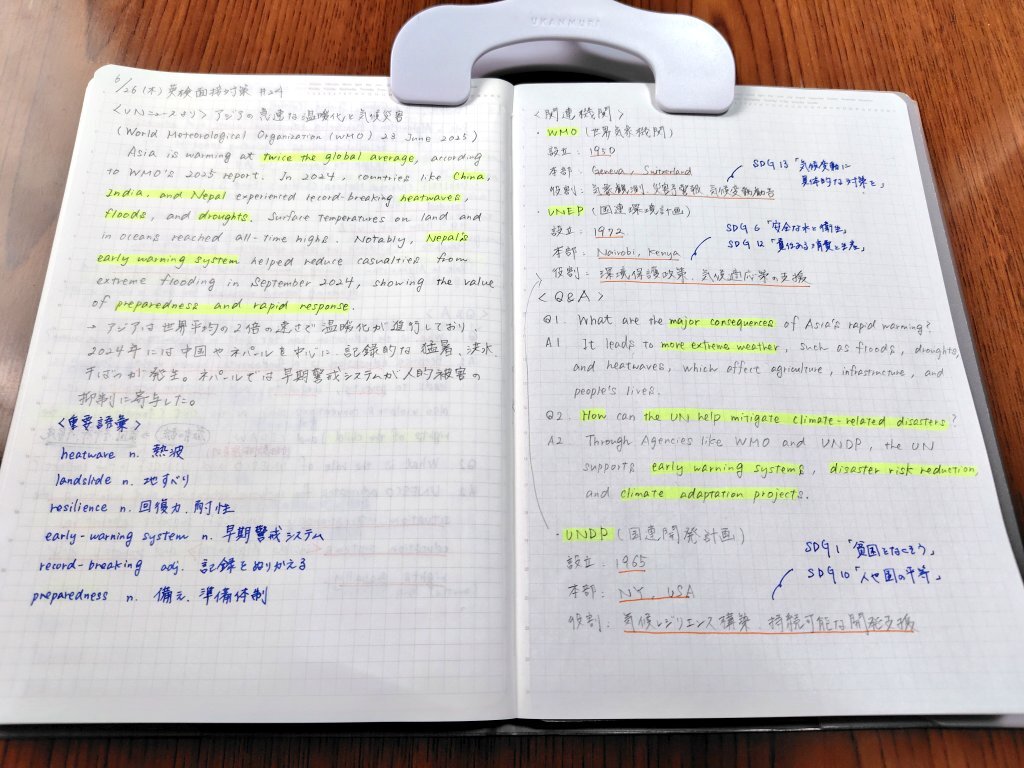 UKANMURI
6/26 (木) 英検面接対策 #24
<UNニュースより> アジアの急速な温暖化と気候災害
(World Meteorological Organization (WMO) 23 June 2025)
Asia is warming at twice the global average, according
to WMO's 2025 report. In 2024, countries like China,
India, and Nepal experienced record-breaking heatwaves,
floods, and droughts. Surface temperatures on land and
in oceans reached all-time highs. Notably, Nepal's
early warning system helped reduce casualties from
extreme flooding in September 2024, showing the value
of preparedness and rapid response.
→ アジアは世界平均の2倍の速さで温暖化が進行しており、
2024年には中国やネパールを中心に、記録的な猛暑、洪水、
干ばつが発生。ネパールでは早期警戒システムが人的被害の
抑制に寄与した。
<重要語彙>
heatwave n. 熱波
landslide n. 地すべり
resilience n. 回復力、耐性
early-warning system n. 早期警戒システム
record-breaking adj. 記録をぬりかえる
preparedness n. 備え、準備体制
<関連機関>
・WMO (世界気象機関)
設立: 1950
本部: Geneva, Switzerland
役割: 気象観測、災害予警報、気候変動
SDG 13 「気候変動に
具体的な対策を」
・UNEP (国連環境計画)
設立: 1972
本部: Nairobi, Kenya
役割: 環境保護政策、気候適応策の支援
SDG 6 「安全な水と衛生」
SDG 12 「責任ある消費と生産」
<Q&A>
Q1. What are the major consequences of Asia's rapid warming?
A1 It leads to more extreme weather, such as floods, droughts,
and heatwaves, which affect agriculture, infrastructure, and
people's lives.
Q2. How can the UN help mitigate climate-related disasters?
A2 Through Agencies like WMO and UNDP, the UN
supports early warning systems, disaster risk reduction,
and climate adaptation projects.
・UNDP (国連開発計画)
設立: 1965
本部: NY, USA
役割: 気候レジリエンス構築、持続可能な開発支援
SDG 1 「貧困をなくそう」
SDG 10 「人や国の平等」